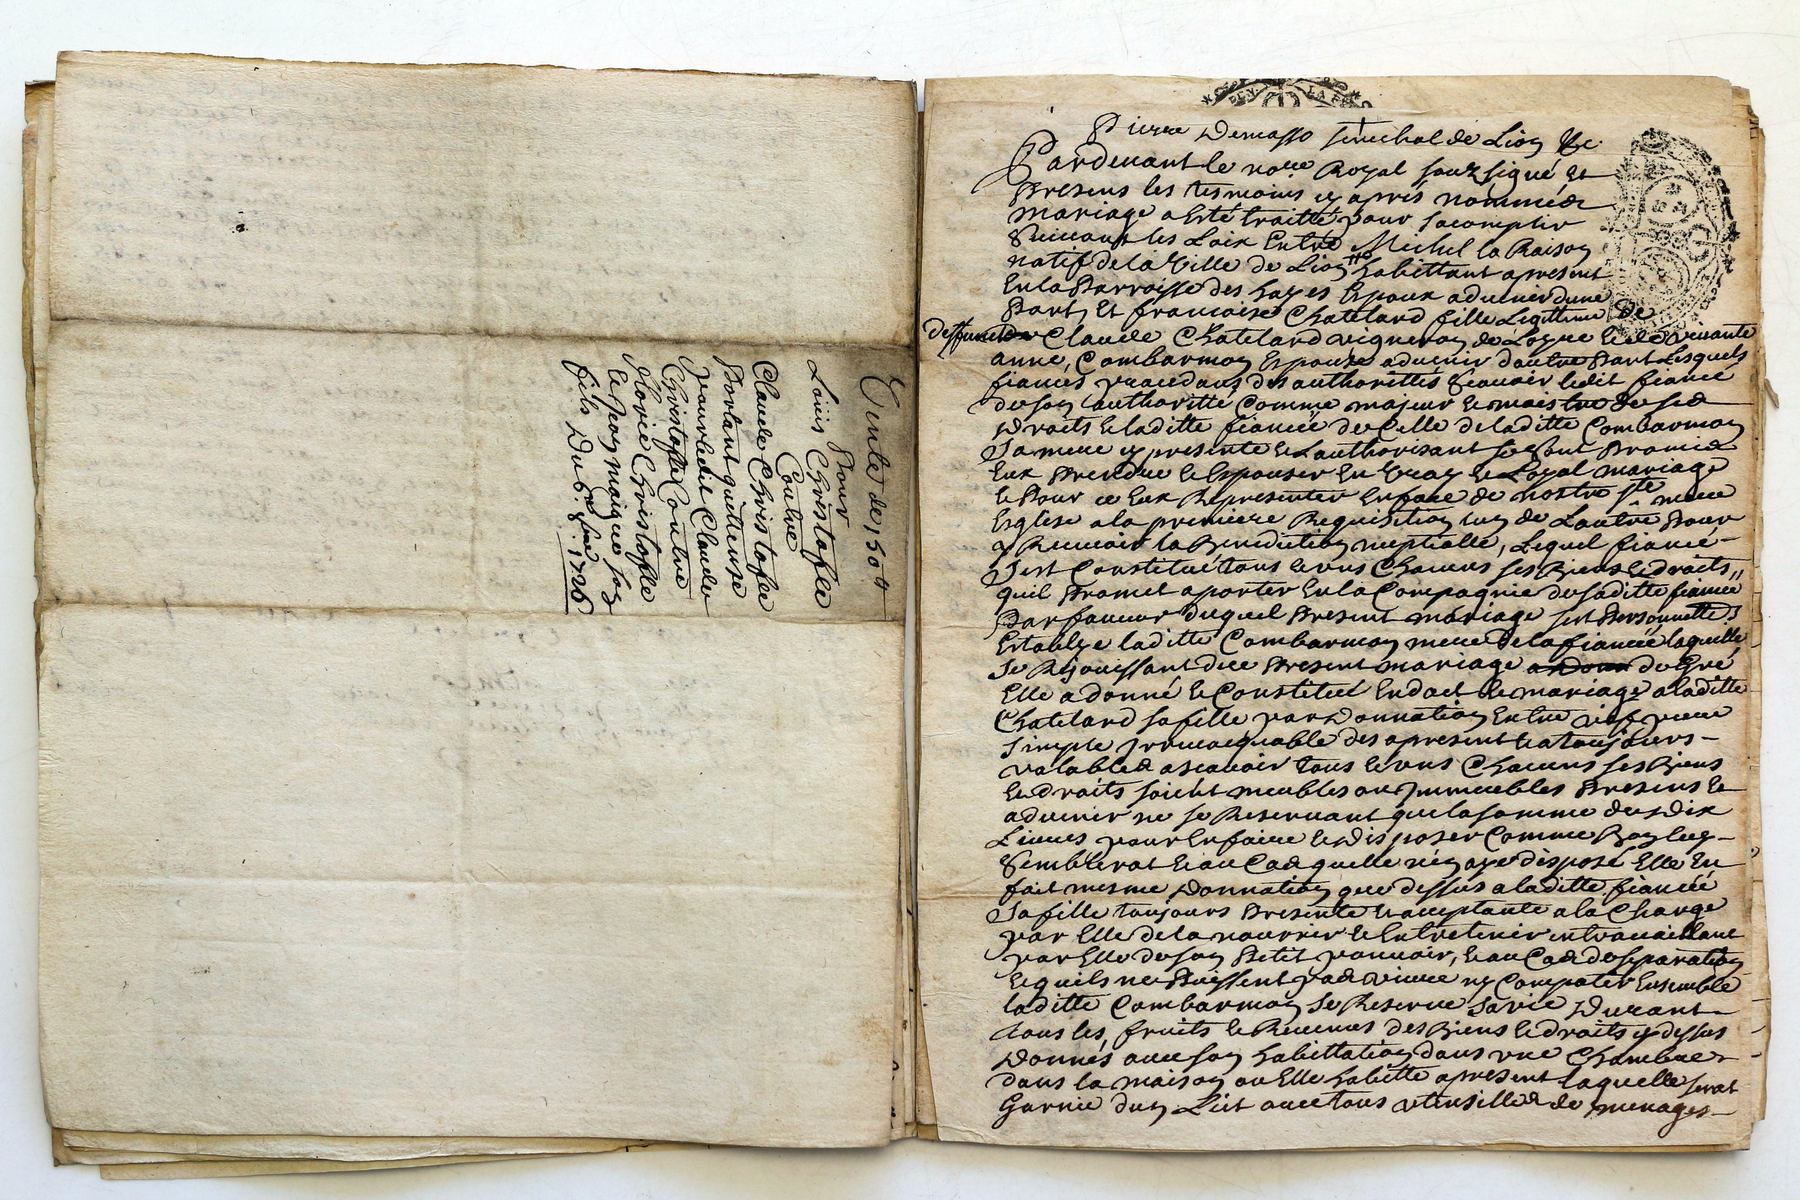 Vente de 150 tt
Pour
Louis Christofle
Contre
Claude Christofle
Portant quittense
pour ledit Claude
Christofle Contre
Florie Christofle
et Jean maigne son
fils Du 6e 1726
Pierre Demasso senechal de Lion &c
Pardeuant le nore Royal souzsigné et
Presens les tesmoins cy aprés nommés
mariage a Esté traitté pour sacomplir
Suiuant les Loix Entre Michel la Raison
natif de la Ville de Lion habittant apresent
En la Parroisse des hayes Espoux aduenir dune
Part, Et francoise Chatelard fille Legittime de
deffunct Claude Chatelard vigneron de Loyre et de viuante
anne, Combarmon Espouze aduenir dautre Part Lesquels
fiancés procedans des authorittés scauoir ledit fiancé
de son authoritté Comme majeur et maistre de ses
Droits et laditte fiancée de Celle de laditte Combarmon
Sa mere cy presente et Lauthorisant se sont Promis
Eux Prendre et Espouser En vray et Loyal mariage
et Pour ce Eux Representer En face de nostre ste mere
Esglise a la premiere Requisition lun de Lautre Pour
y Receuoir la Benediction nuptialle, Lequel fiancé
Sest Constitué tous et vns Chacuns ses Biens et droits
quil Promet aporter En la Compagnie de saditte fiancée
Par faueur duquel Present mariage sest Personnelle
Establye laditte Combarmon mere de la fiancée laquelle
Se Rejouissant dice Present mariage de Gré
Elle a donné et Constitué En dot de mariage a laditte
Chatelard sa fille par Donnation Entre vif pure
Simple Jrreuocquable des apresent et a tousjours
valables ascauoir tous et vns Chacuns ses Biens
et droits soient meubles ou Jmmeubles Presens et
aduenir ne se Reseruant que la somme de dix
Liures pour En faire et disposer Comme Bon luy
Semblerat et au Cas quelle ney aye disposé Elle En
fait mesme Donnation que dessus a laditte fiancée
Sa fille toujours Presente et acceptante a la Charge
par Elle de la nourrir et Entretenir en trauaillant
par Elle de son Petit pouuoir, et au Cas de separation
et quils ne Puissent pas viure ny Compater Ensemble
laditte Combarmon se Reserue sa vie Durant
tous les fruits et Reuenus des Biens et droits cy dessus
Donnés auec son habittation dans vne Chambre
dans la maison ou Elle habitte apresent laquelle serat
Garnie dun Lict auec tous vtensilles de menages